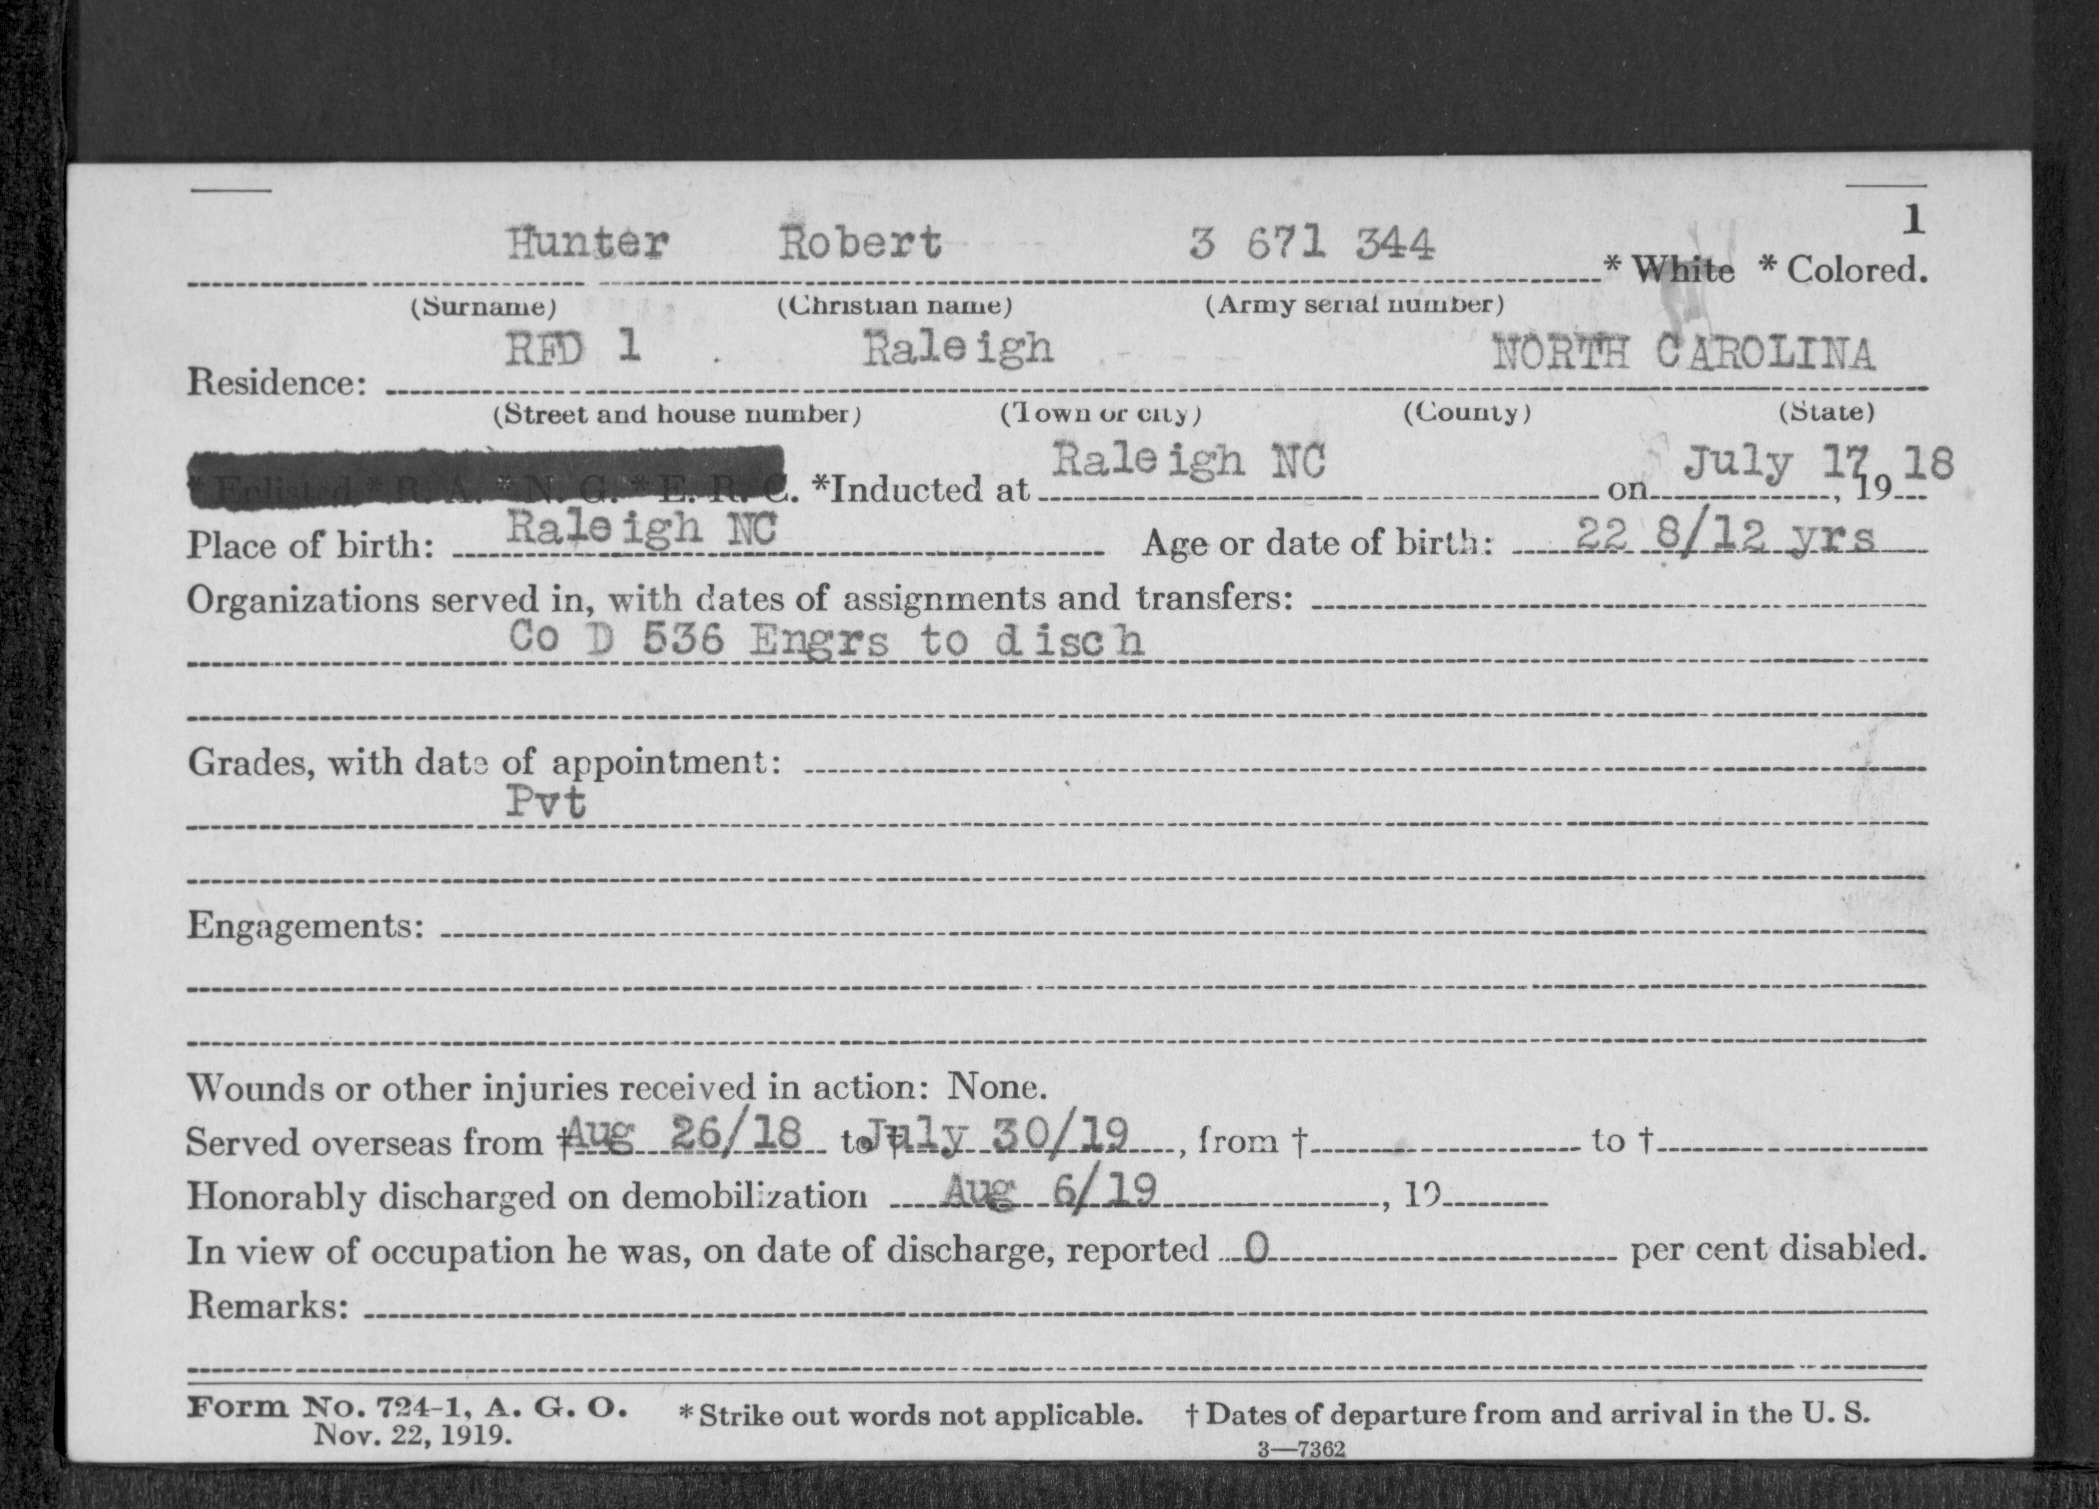 1
Hunter Robert 3 671 344 * White * Colored.
(Surname) (Christian name) (Army serial number)
RFD 1 Raleigh NORTH CAROLINA
Residence:
(Street and house number) (Town or city) (County) (State)
* Enlisted * R. A. * N. G. * E. R. C. *Inducted at Raleigh NC on July 17, 19 18
Place of birth: Raleigh NC Age or date of birth: 22 8/12 yrs
Organizations served in, with dates of assignments and transfers:
Co D 536 Engrs to disch
Grades, with date of appointment:
Pvt
Engagements:
Wounds or other injuries received in action: None.
Served overseas from † Aug 26/18 to † July 30/19, from † to †
Honorably discharged on demobilization Aug 6/19, 19
In view of occupation he was, on date of discharge, reported 0 per cent disabled.
Remarks:
Form No. 724-1, A. G. O. * Strike out words not applicable. † Dates of departure from and arrival in the U. S.
Nov. 22, 1919.
3—7362